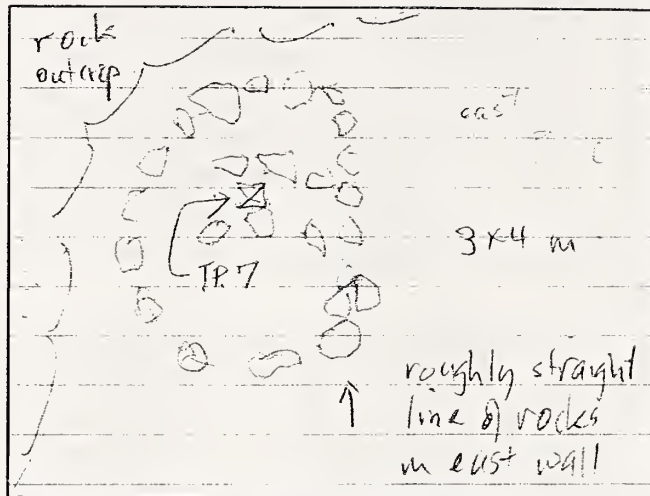 rock
outcrop
east
3x4 m
T.P. 7
roughly straight
line of rocks
in east wall